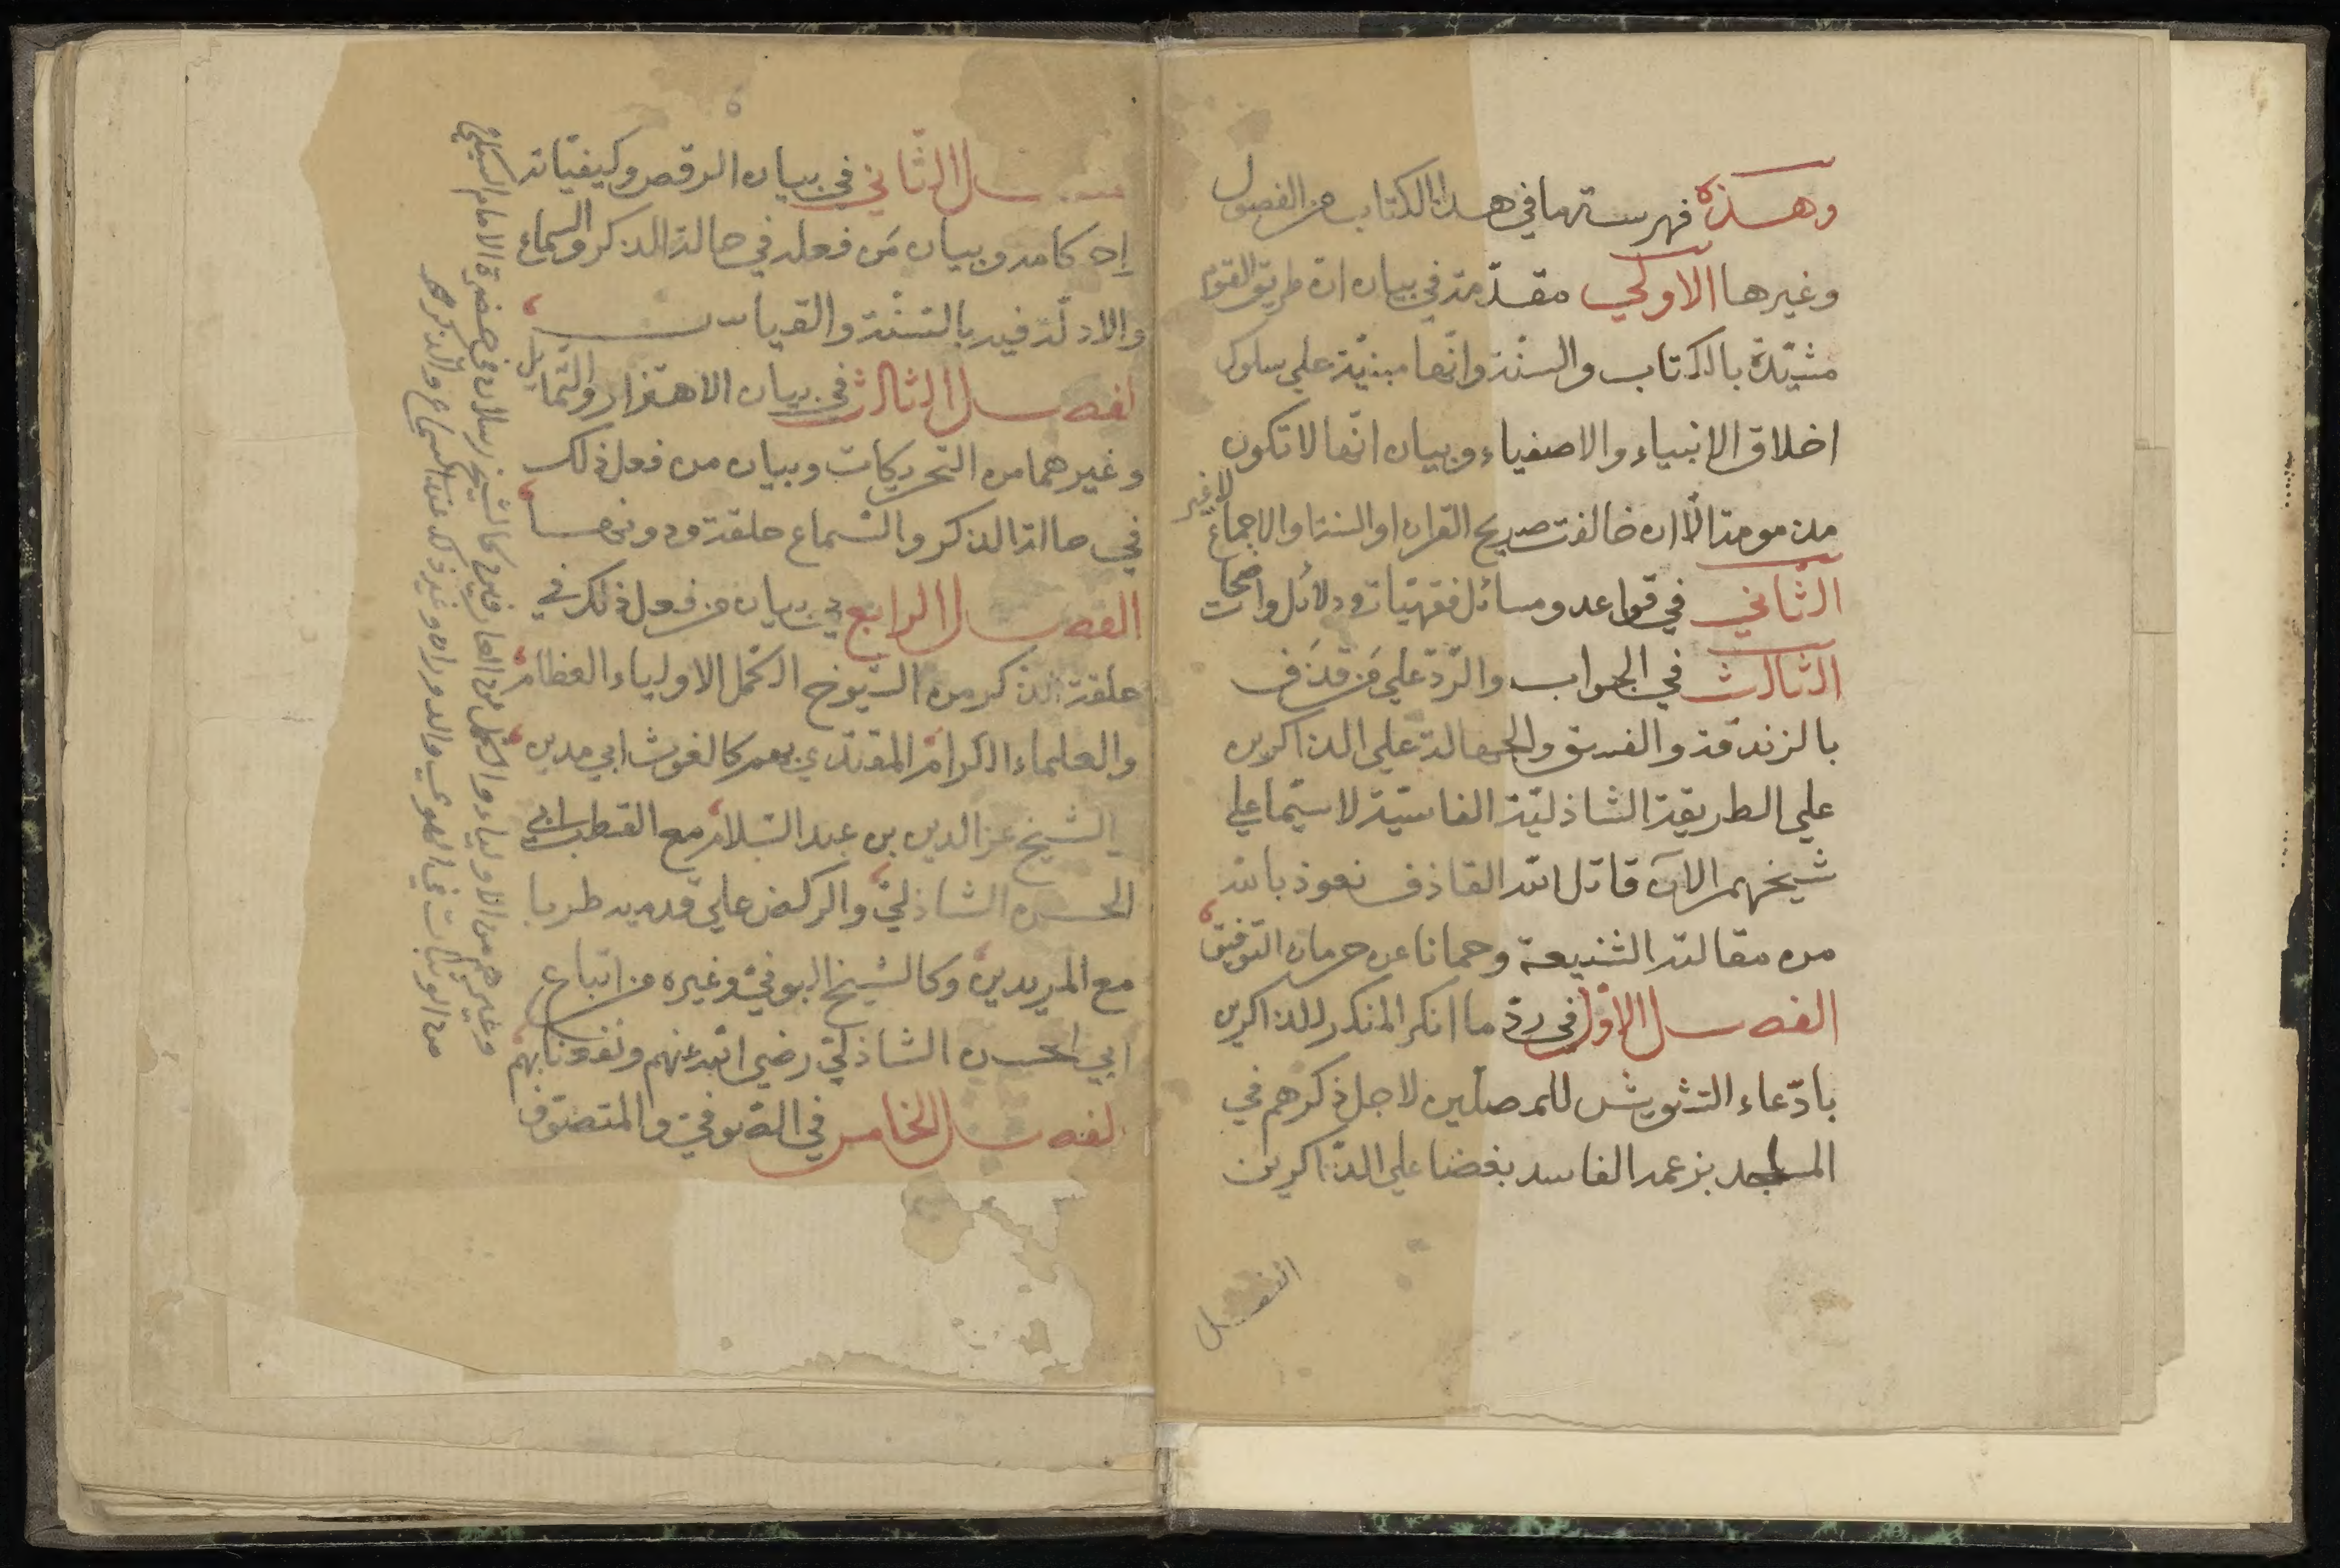 وهذه فهرسة ما في هذا الكتاب من الفصول
وغيرها الاولي مقدّمة في بيان انّ طريق القوم
مشيّدة بالكتاب والسنّة وانّها مبنيّة علي سلوك
اخلاق الانبياء والاصفياء وبيان انّها لا تكون
مذمومة الّا ان خالفت صريح القران او السنة او الاجماع لا غير
الثّاني في قواعد ومسائل فقهيّات ودلائل واضحات
الثالث في الجواب والرّدّ علي مَن قذَف
بالزندقة والفسق والجهالة علي الذاكرين
علي الطريقة الشاذليّة الفاسيّة لا سيّما علي
شيخهم الآن قاتل الله القاذف نعوذ بالله
من مقالته الشنيعة وحمانا عن حرمان التوفيق
الفصل الاوّل في ردّ ما انكر المنكر للذاكرين
بادّعاء التشويش للمصلّين لاجل ذكرهم في
المساجد بزعمه الفاسد بغضا علي الذّاكرين
الفصل
ـصل الثّاني في بيان الرقص وكيفيّاته
احكامه وبيان مَن فعله في حالة الذكر والسماع
والادلّة فيه بالسّنّة والقياس
لفصل الثالث في بيان الاهتزاز والتّمايل
وغيرهما من التحريكات وبيان من فعل ذلك
في حالة الذكر والسّماع حلقة ودونها
الفصل الرابع في بيان من فعل ذلك في
حلقة الذكر من الشيوخ الكمّل الاولياء العظام
والعلماء الكرام المقتدي بهم كالغوث ابي مدين
الشيخ عزالدين بن عبد السّلام مع القطب ابي
الحسن الشاذليّ والركض علي قدميه طربا
مع المريدين وكالشيخ البوني وغيره من اتباع
ابي الحسن الشاذليّ رضي الله عنهم ونفعنا بهم
لفصل الخامس في الصّوفيّ والمتصوّف
وغيرهم من الاولياء والكمّل من العارفين كالشيخ رسلان في حضرة الامام السبكي
من الوثبات في الهوي والدوران وغير ذلك عند السماع والذكر